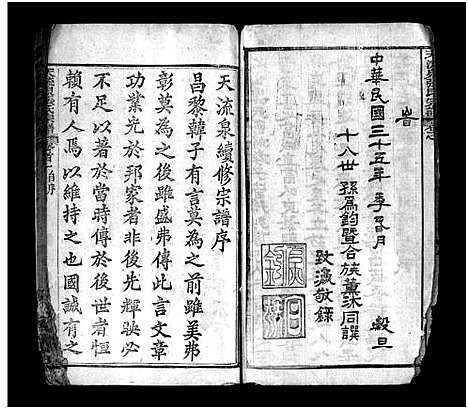 中華民國三十五年季春月 穀旦
十八世 孫為鈞暨合族董沐同譔
敬錄
天流泉續修宗譜序
昌黎韓子有言莫為之前雖美弗
彰莫為之後雖盛弗傳此言文章
功業光於邦家者非後先輝映必
不足以著於當時傳於後世者恒
賴有人焉以維持之也國誠有之